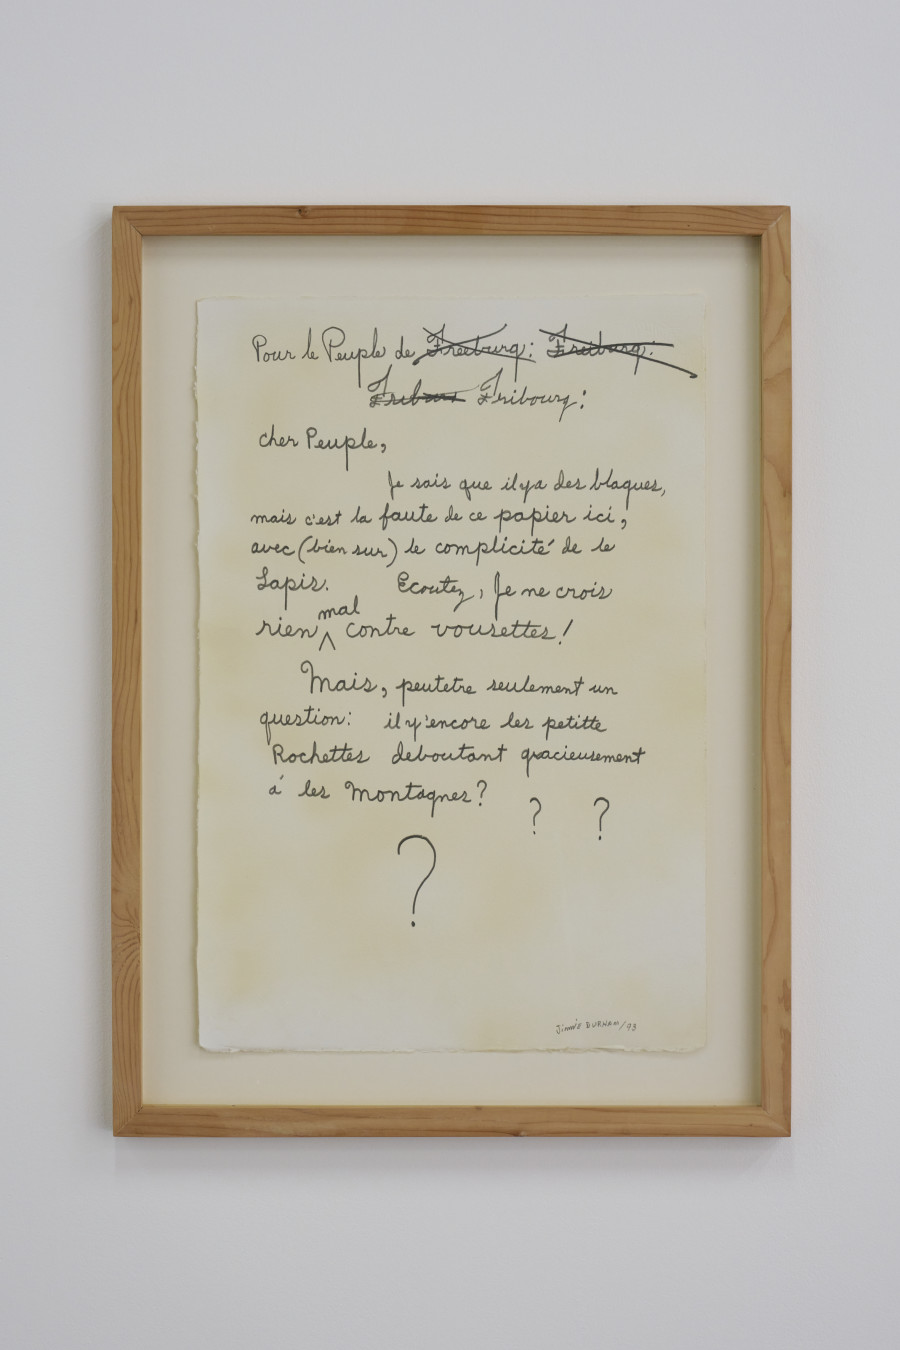 Pour le Peuple de Freeburg: Freiburg:
Fribour Fribourg:
cher Peuple,
Je sais que il ya des blaques,
mais c'est la faute de ce papier ici,
avec (bien sur) le complicité de le
Lapis. Ecoutez, Je ne crois
mal
rien contre vousettes!
Mais, peutetre seulement un
question: il y'encore les petitte
Rochettes deboutant gracieusement
á les Montagnes?
? ?
?
Jimmie DURHAM/93